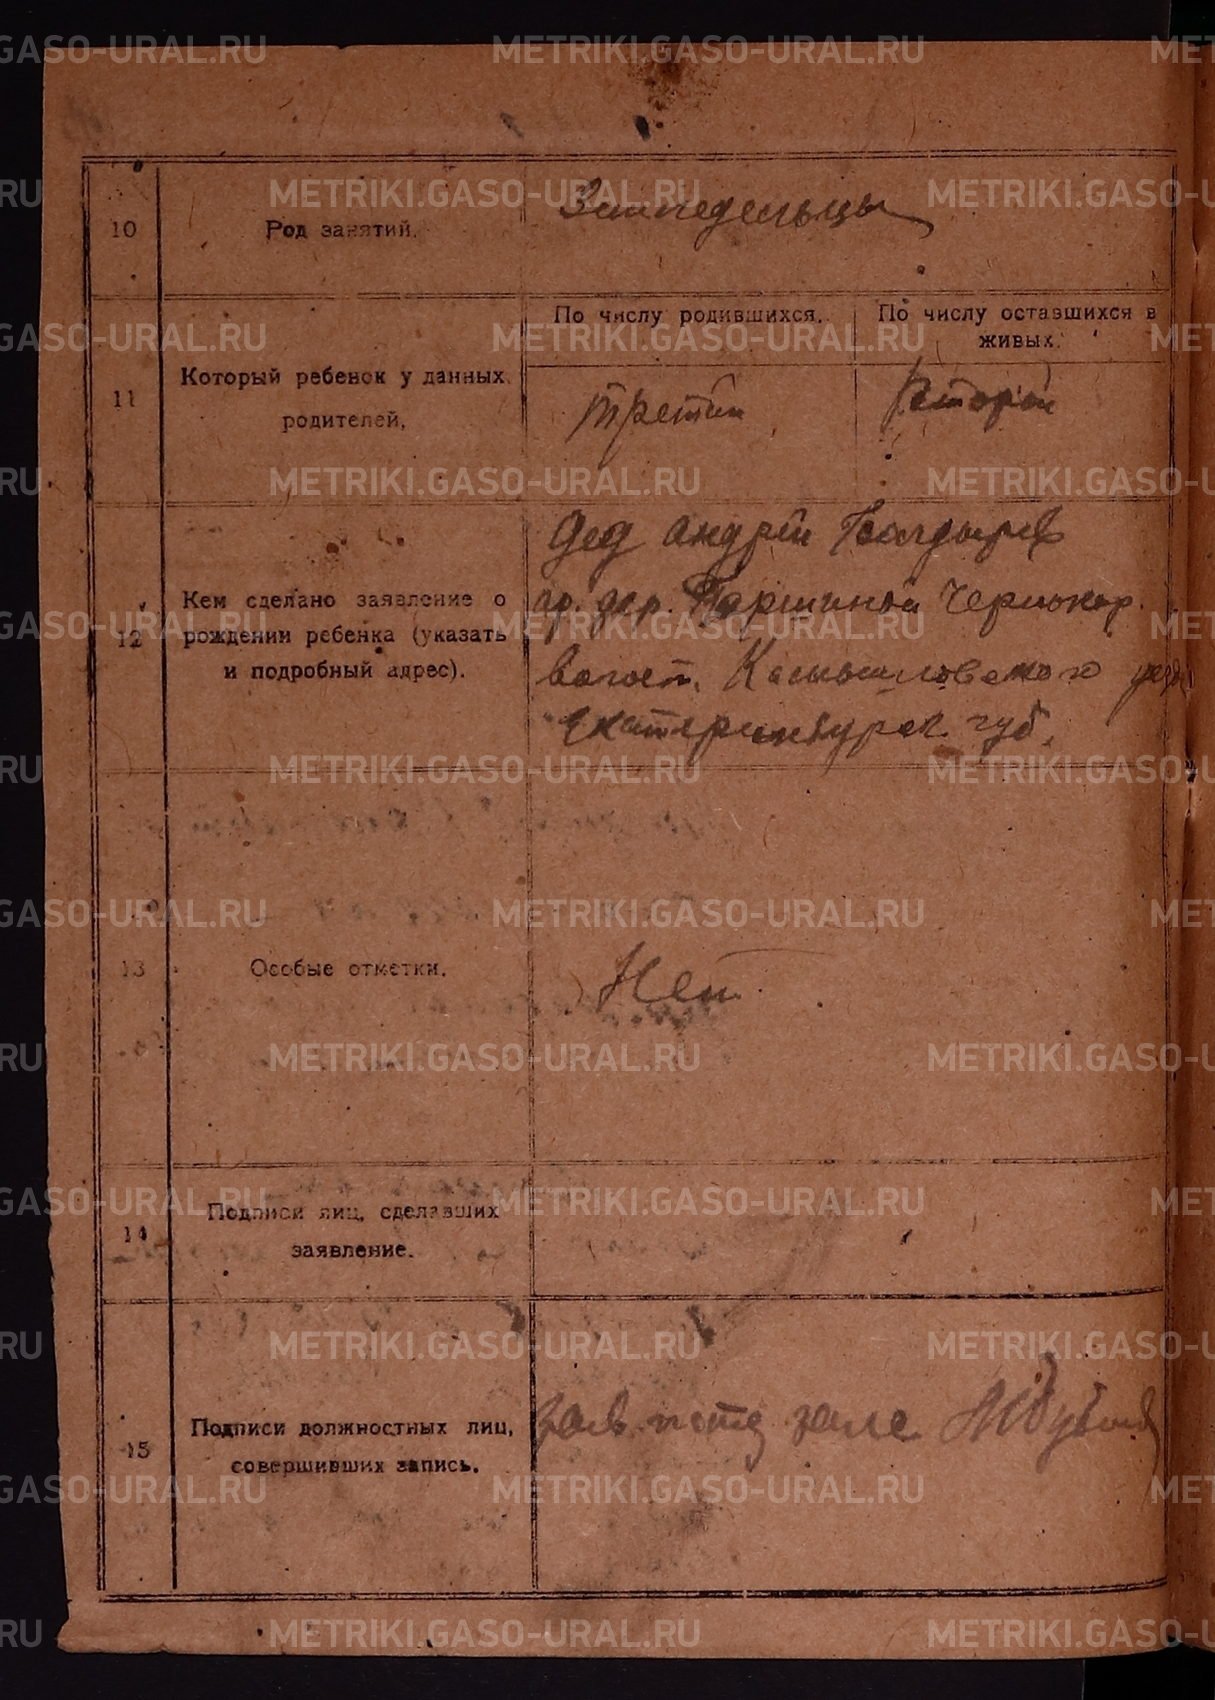 METRIKI.GASO-URAL.RU
10
Род занятий.
Земледельцы
11
Который ребенок у данных
родителей,
По числу родившихся.
По числу оставшихся в
живых.
третий
второй
12
Кем сделано заявление о
рождении ребенка (указать
и подробный адрес).
Дед Андрей Болдырев
гр. дер. Паршиной Чернокор.
волост. Камышловского уезда
Екатеринбургск. губ.
13
Особые отметки.
Нет
14
Подписи лиц, сделавших
заявление.
15
Подписи должностных лиц,
совершивших запись.
Зав.